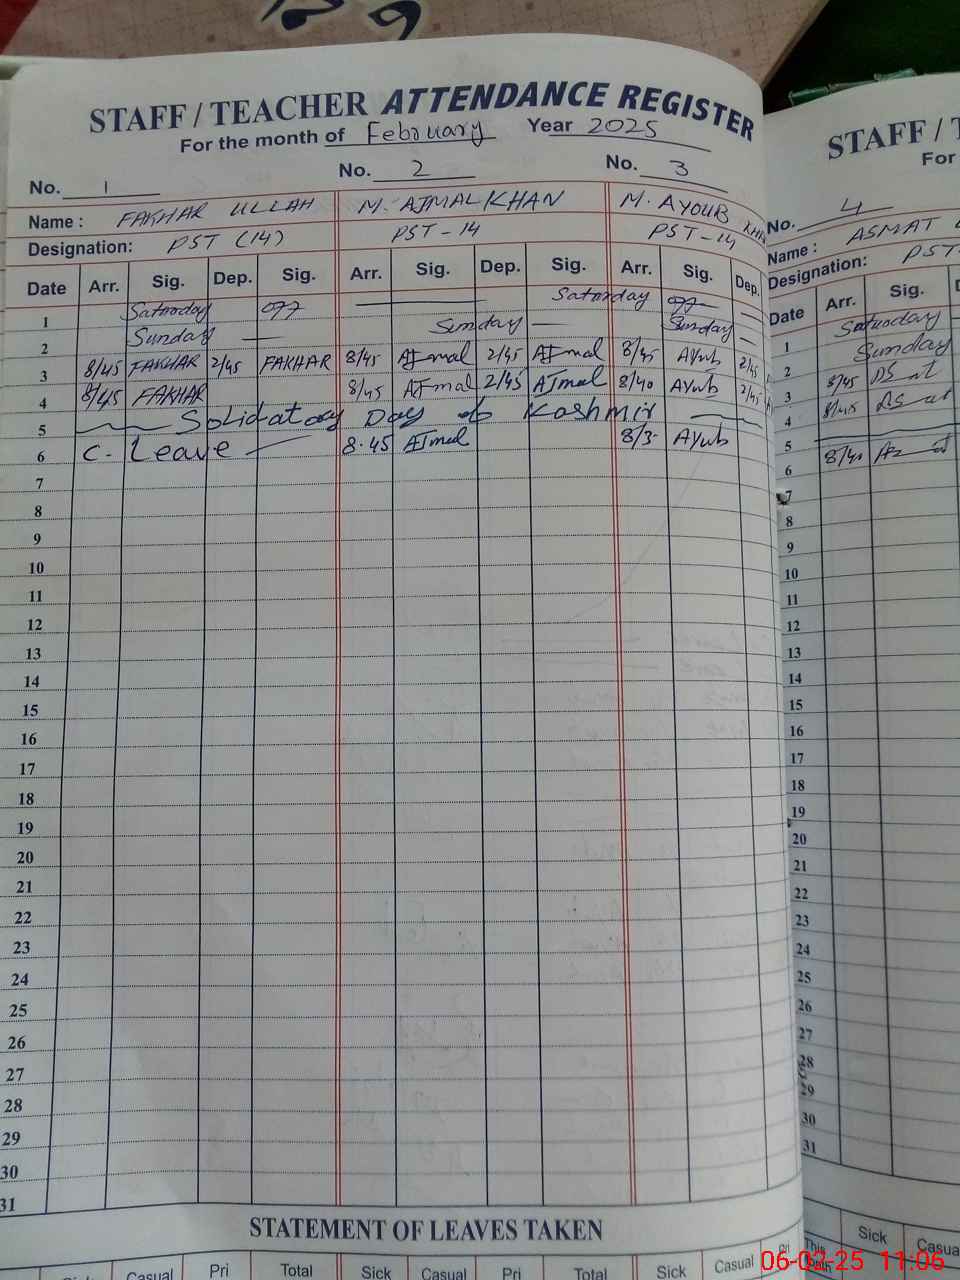 STAFF / TEACHER ATTENDANCE REGISTER
For the month of February Year 2025
No. 1 No. 2 No. 3
Name : FAKHAR ULLAH M. AJMAL KHAN M. AYOUB KHAN
Designation: PST (14) PST - 14 PST - 14
Date Arr. Sig. Dep. Sig. Arr. Sig. Dep. Sig. Arr. Sig. Dep.
1 Saturday off Saturday off
2 Sunday — Sunday — Sunday —
3 8/45 FAKHAR 2/45 FAKHAR 8/45 AJmal 2/45 AJmal 8/45 AYub 2/45
4 8/45 FAKHAR 8/45 AJmal 2/45 AJmal 8/40 AYub 2/45
5 Solidatory Day of Kashmir
6 C- Leave 8.45 AJmal 8/3- AYub
7
8
9
10
11
12
13
14
15
16
17
18
19
20
21
22
23
24
25
26
27
28
29
30
31
STATEMENT OF LEAVES TAKEN
Sick Casual Pri Total Sick Casual Pri Total Sick Casual Pri
STAFF / T
For
No. 4
Name : ASMAT
Designation: PST
Date Arr. Sig.
1 Saturday
2 Sunday
3 8/45
4 8/45
5
6 8/40
7
8
9
10
11
12
13
14
15
16
17
18
19
20
21
22
23
24
25
26
27
28
29
30
31
This Sick Casua
06-02-25 11:06